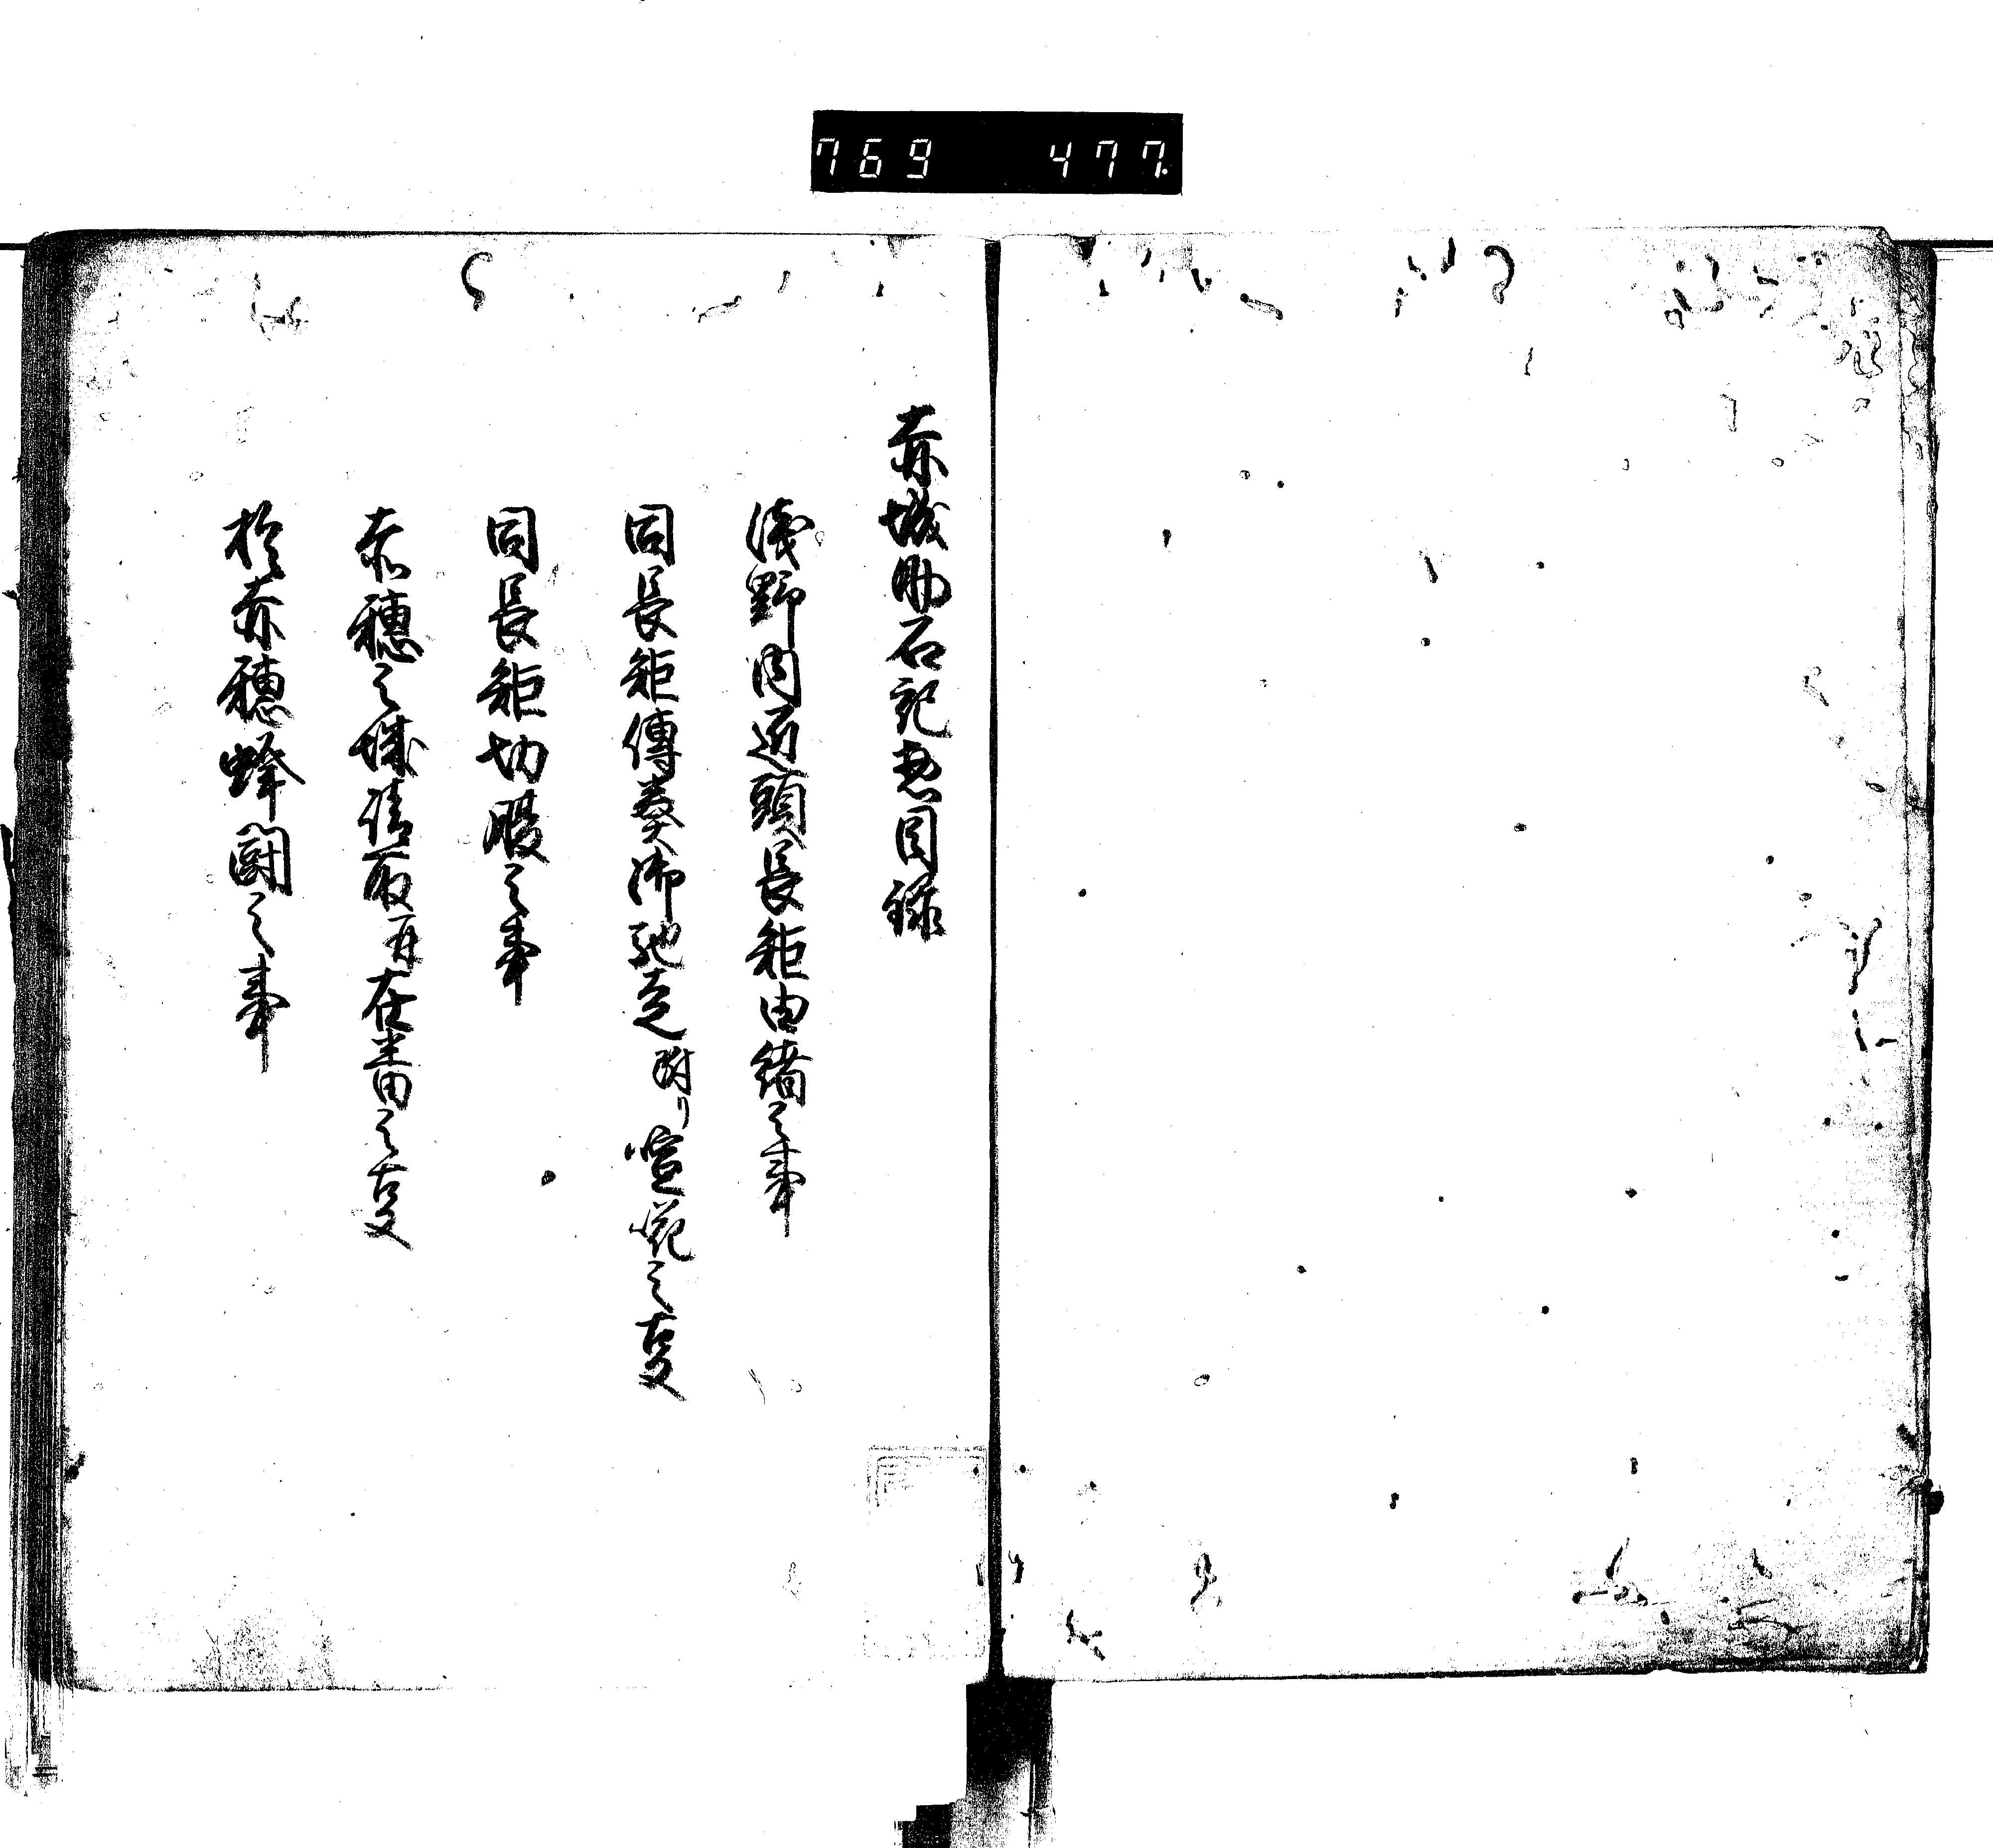 769 477
赤城助石記惣目録
淺野内匠頭長矩由緒之事
同長矩傳奏御馳走附リ喧𠵅之㕝
同長矩切腹之事
赤穂之城請取并在番之㕝
於赤穂蜂鬪之事